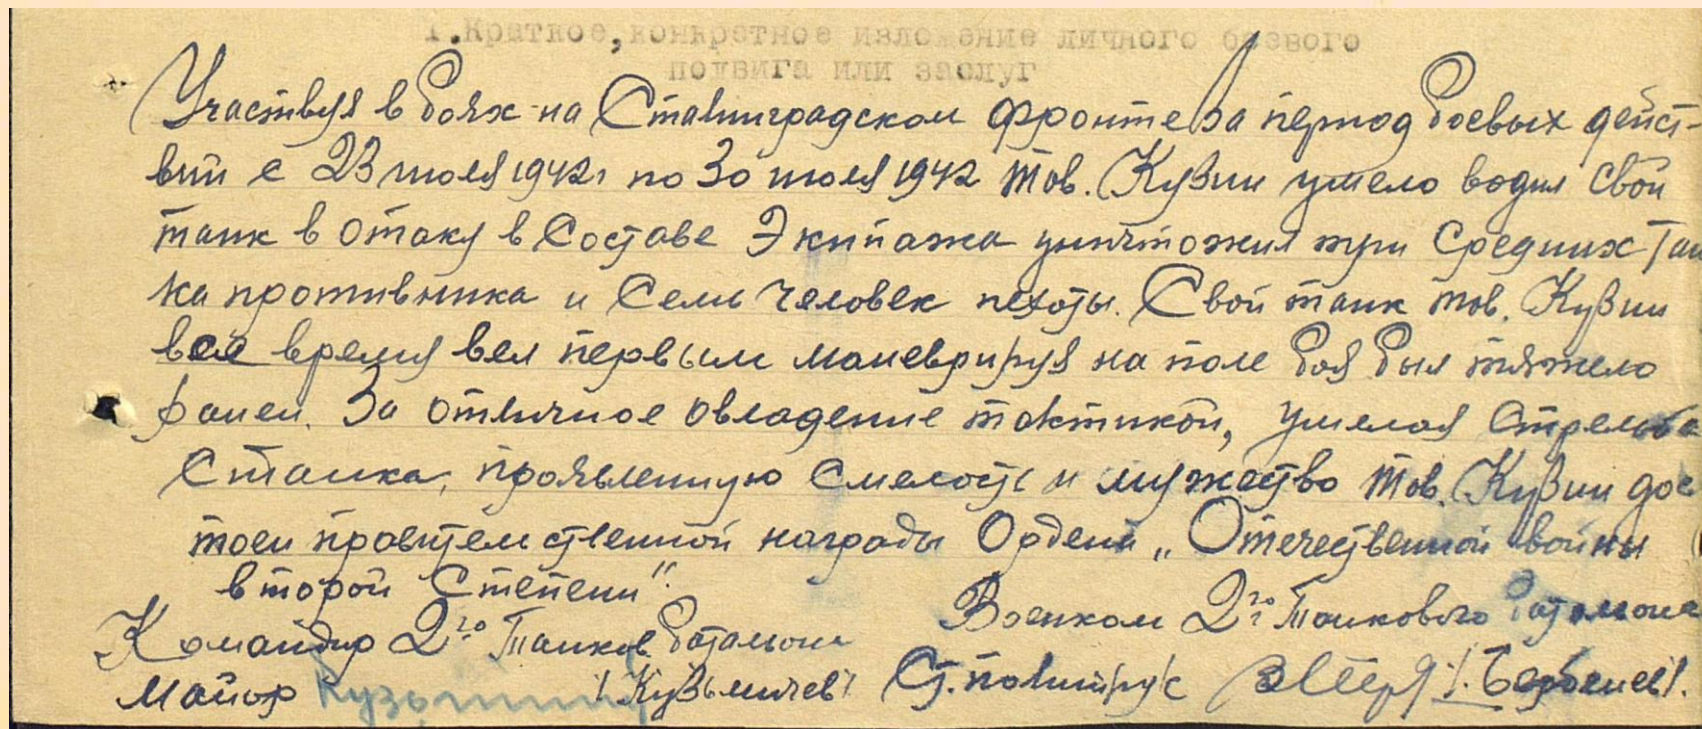 1. Краткое, конкретное изложение личного боевого
подвига или заслуг
Участвуя в боях на Сталинградском фронте за период боевых дейст-
вий с 23 июля 1942г по 30 июля 1942 тов. Кузин умело водил свой
танк в отаку в Составе Экипажа уничтожил три Средних тан
ка противника и Семь Человек пехоты. Свой танк тов. Кузин
всё время вел первым маневрируя на поле боя был тяжело
ранен. За отличное овладение тактикой, умелая Стрельба
С танка, проявленную Смелость и мужество тов. Кузин дос
тоен правительственной награды Ордена „Отечественной войны
второй Степени".
Командир 2го Танков. батальона
Военком 2го Танкового батальона
Майор /Кузьмичев/
Ст. политрук